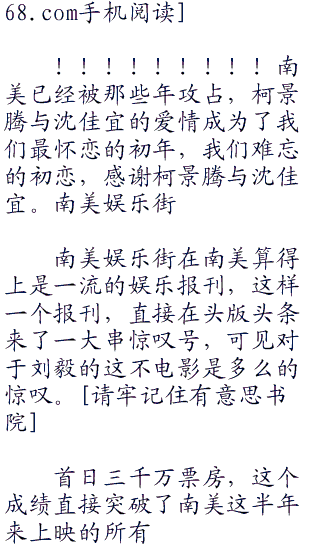 68.com手机阅读]
！！！！！！！！！南
美已经被那些年攻占，柯景
腾与沈佳宜的爱情成为了我
们最怀恋的初年，我们难忘
的初恋，感谢柯景腾与沈佳
宜。南美娱乐街
南美娱乐街在南美算得
上是一流的娱乐报刊，这样
一个报刊，直接在头版头条
来了一大串惊叹号，可见对
于刘毅的这不电影是多么的
惊叹。[请牢记住有意思书
院]
首日三千万票房，这个
成绩直接突破了南美这半年
来上映的所有